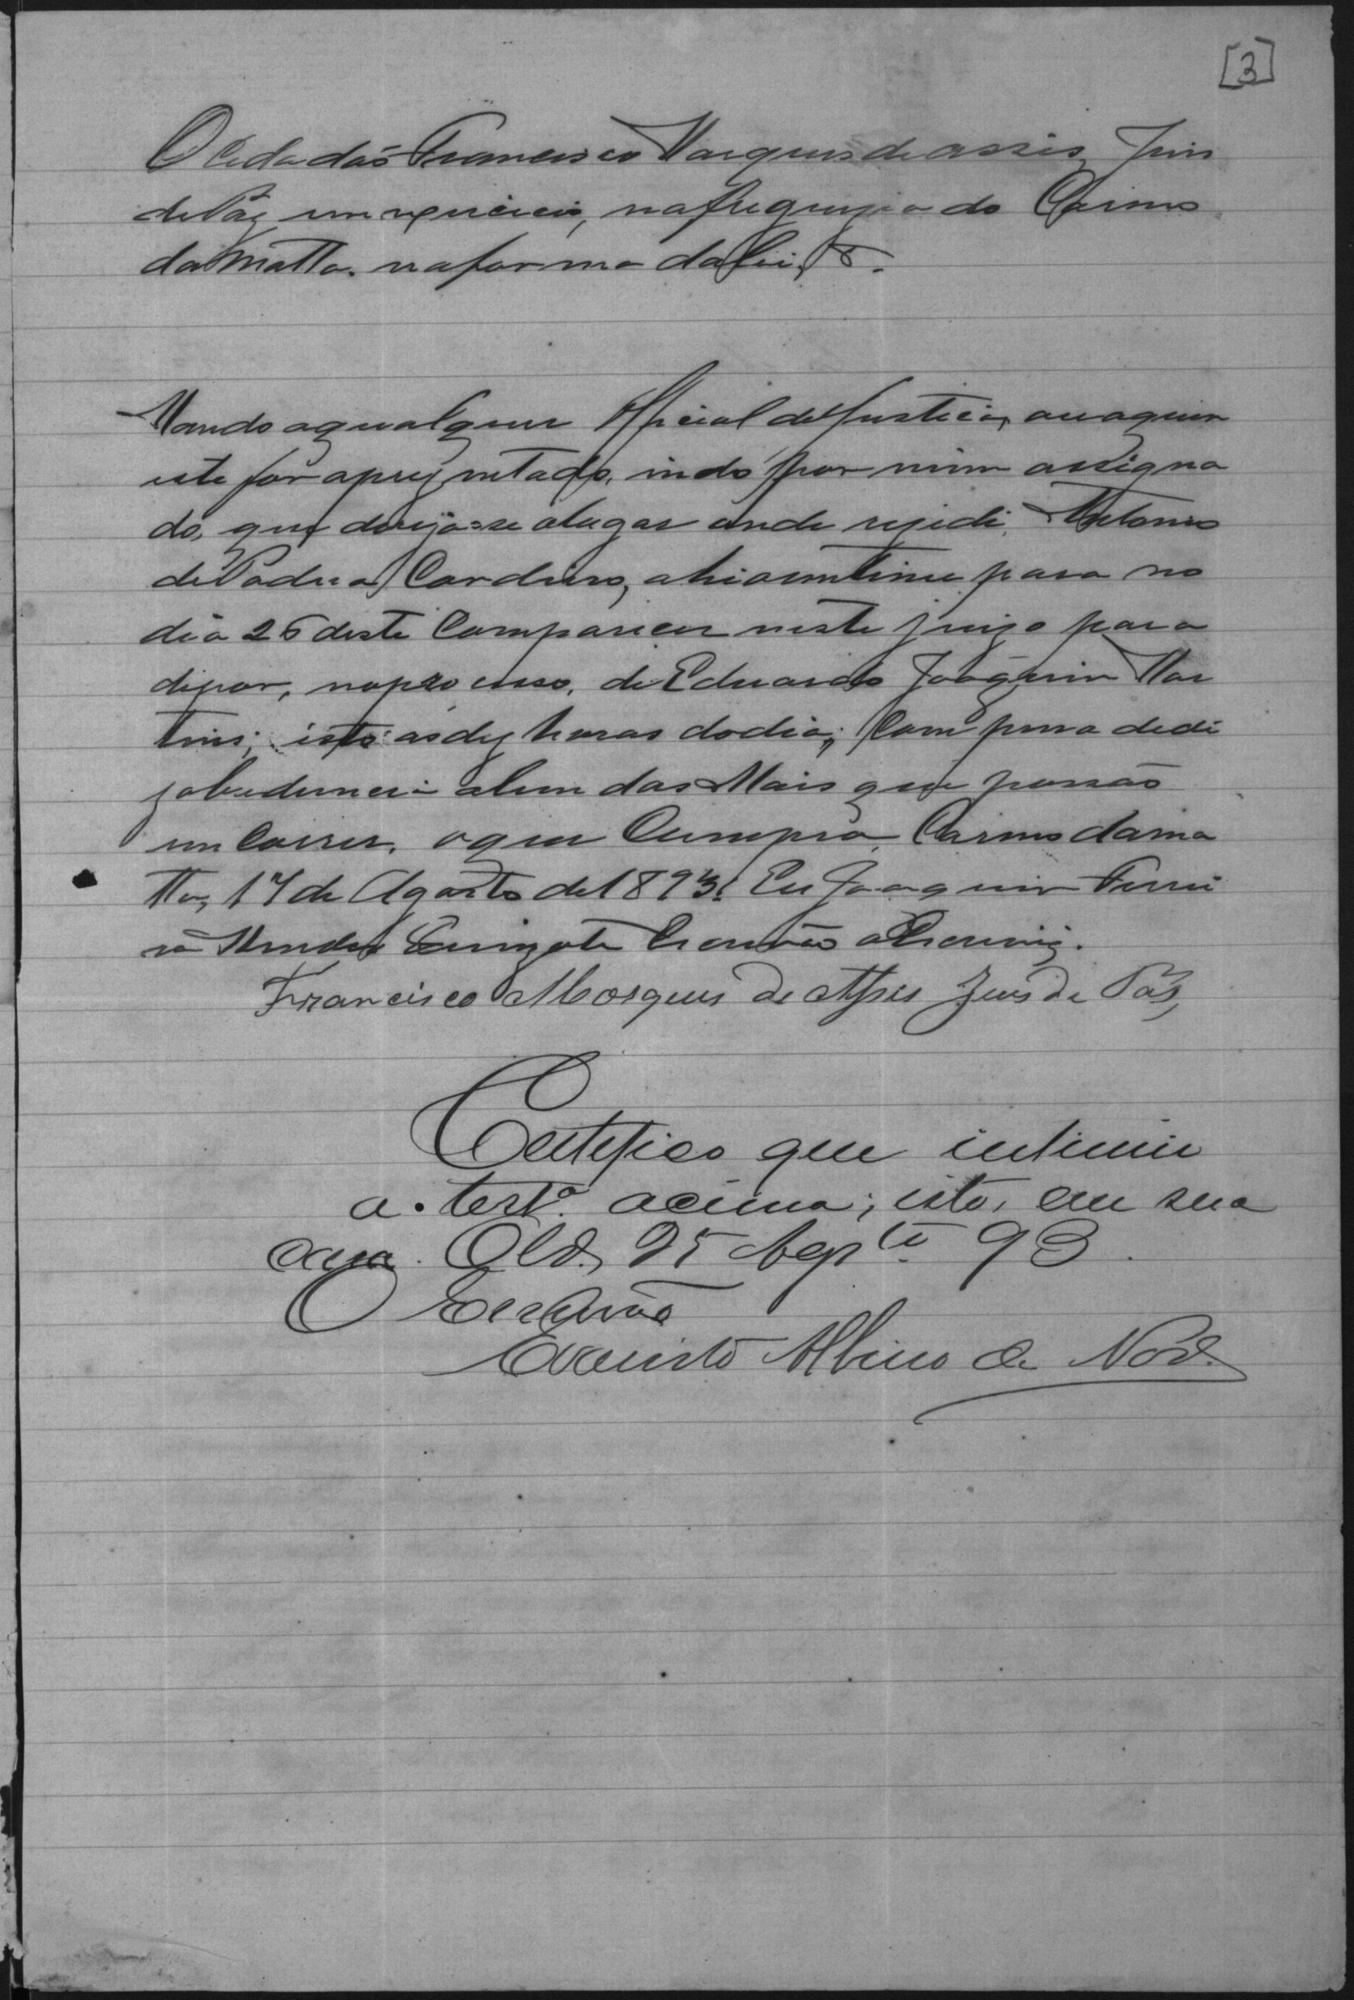 [3]
O Cidadão Francisco Marques de assis, Juis
de Páz em exercicio, na freguezia do Carmo
da Matta. na forma da lei, &.
Mando a qualquer Official de Justiça, ou a quem
este for aprezentado, indo por mim assigna
do, que dirija-se a lugar onde rezidi Antonio
de Padua Cardoso, ahi o intime para no
dia 26 deste Comparecer neste juizo para
depor, no processo, de Eduardo Joaquim Mar
tins; isto as dez horas do dia; Com pena de de
zobediencia alem das Mais que possão
em Correr. o que Cumpra. Carmo da ma
tta, 17 de Agosto de 1893. Eu Joaquim Ferrei
ra Mendes Escrivão o Escrevi.
Francisco Marques de Assis Juis de Páz,
Certifico que intimei
a test.ª acima; isto, em sua
casa. 25 93.
O Escrivão
Evaristo Albino de